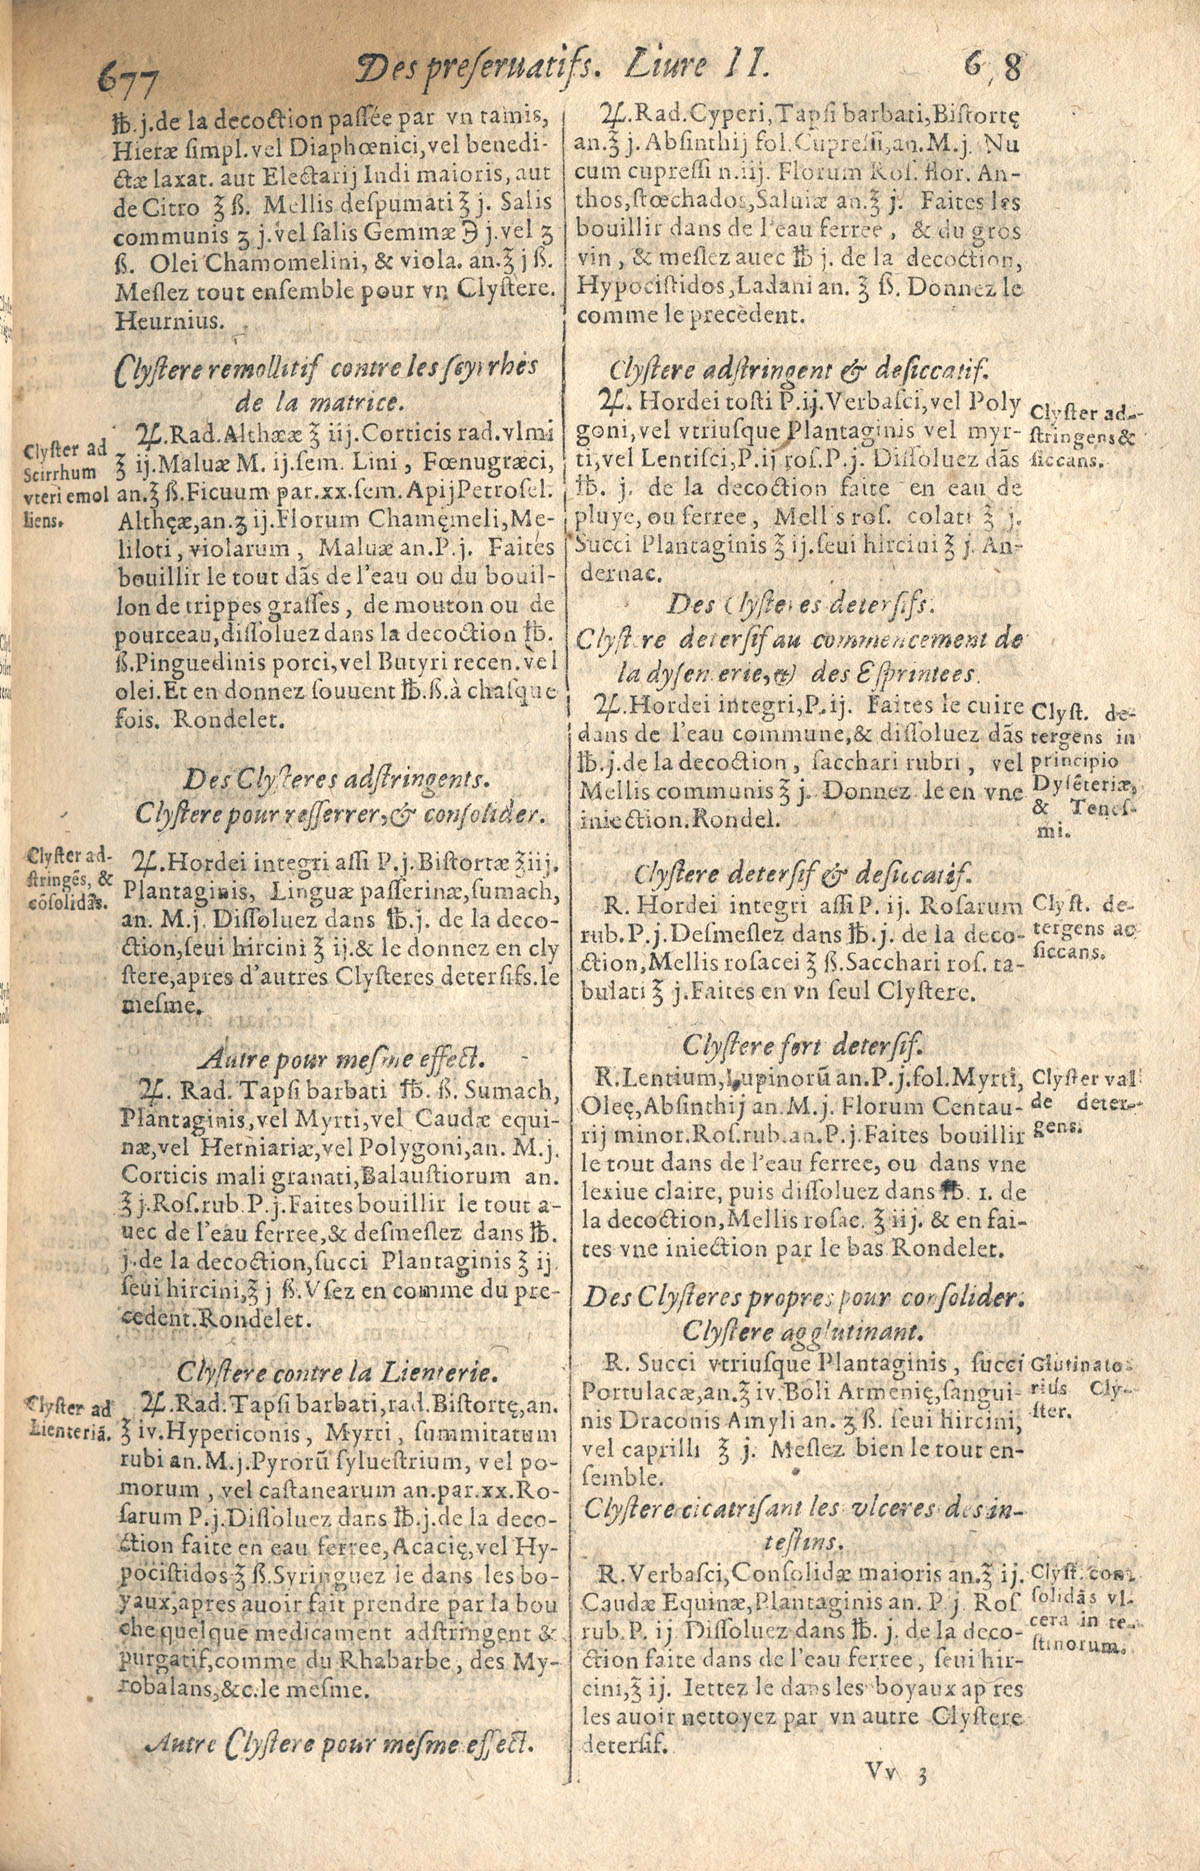 677 Des preseruatifs. Liure II. 6 8
℔. j. de la decoction passée par vn tamis,
Hieræ simpl. vel Diaphœnici, vel benedi-
ctæ laxat. aut Electarij Indi maioris, aut
de Citro ℥ ß. Mellis despumati ℥ j. Salis
communis ʒ j. vel salis Gemmæ ℈ j. vel ʒ
ß. Olei Chamomelini, & viola. an. ℥ j ß.
Meslez tout ensemble pour vn Clystere.
Heurnius.
Clystere remollitif contre les scyrrhes
de la matrice.
Clyster ad
Scirrhum
vteri emol
liens.
♃. Rad. Althææ ℥ iij. Corticis rad. vlmi
℥ ij. Maluæ M. ij. sem. Lini, Fœnugræci,
an. ℥ ß. Ficuum par. xx. sem. Apij Petrosel.
Althęæ, an. ʒ ij. Florum Chamęmeli, Me-
liloti, violarum, Maluæ an. P. j. Faites
bouillir le tout dãs de l'eau ou du bouil-
lon de trippes grasses, de mouton ou de
pourceau, dissoluez dans la decoction ℔.
ß. Pinguedinis porci, vel Butyri recen. vel
olei. Et en donnez souuent ℔. ß. à chasque
fois. Rondelet.
Des Clysteres adstringents.
Clystere pour resserrer, & consolider.
Clyster ad-
stringẽs, &
cõsolidãs.
♃. Hordei integri assi P. j. Bistortæ ℥ iij.
Plantaginis, Linguæ passerinæ, sumach,
an. M. j. Dissoluez dans ℔. j. de la deco-
ction, seui hircini ℥ ij. & le donnez en cly
stere, apres d'autres Clysteres detersifs. le
mesme.
Autre pour mesme effect.
♃. Rad. Tapsi barbati ℔. ß. Sumach,
Plantaginis, vel Myrti, vel Caudæ equi-
næ, vel Herniariæ, vel Polygoni, an. M. j.
Corticis mali granati, Balaustiorum an.
℥ j. Ros. rub. P. j. Faites bouillir le tout a-
uec de l'eau ferree, & desmeslez dans ℔.
j. de la decoction, succi Plantaginis ℥ ij.
seui hircini, ℥ j ß. Vsez en comme du pre-
cedent. Rondelet.
Clystere contre la Lienterie.
Clyster ad
Lienteriã.
♃. Rad. Tapsi barbati, rad. Bistortę, an.
℥ iv. Hypericonis, Myrti, summitatum
rubi an. M. j. Pyrorũ syluestrium, vel po-
morum, vel castanearum an. par. xx. Ro-
sarum P. j. Dissoluez dans ℔. j. de la deco-
ction faite en eau ferree, Acacię, vel Hy-
pocistidos ℥ ß. Syringuez le dans les bo-
yaux, apres auoir fait prendre par la bou
che quelque medicament adstringent &
purgatif, comme du Rhabarbe, des My-
robalans, &c. le mesme.
Autre Clystere pour mesme effect.
♃. Rad. Cyperi, Tapsi barbati, Bistortę
an. ℥ j. Absinthij fol. Cupressi, an. M. j. Nu
cum cupressi n. iij. Florum Ros. flor. An-
thos, stœchados, Saluiæ an. ℥ j. Faites les
bouillir dans de l'eau ferree, & du gros
vin, & meslez auec ℔ j. de la decoction,
Hypocistidos, Ladani an. ℥ ß. Donnez le
comme le precedent.
Clystere adstringent & desiccatif.
♃. Hordei tosti P. ij. Verbasci, vel Poly
goni, vel vtriusque Plantaginis vel myr-
ti, vel Lentisci, P. ij ros. P. j. Dissoluez dãs
℔. j. de la decoction faite en eau de
pluye, ou ferree, Mell s ros. colati ℥ j.
Succi Plantaginis ℥ ij. seui hircini ℥ j. An-
dernac.
Clyster ad-
stringens &
siccans.
Des Clysteres detersifs.
Clystere detersif au commencement de
la dysenterie, & des Esprintees.
♃. Hordei integri, P. ij. Faites le cuire
dans de l'eau commune, & dissoluez dãs
℔. j. de la decoction, sacchari rubri, vel
Mellis communis ℥ j. Donnez le en vne
iniection. Rondel.
Clyst. de-
tergens in
principio
Dysẽteriæ,
& Tenes-
mi.
Clystere detersif & desiccatif.
R. Hordei integri assi P. ij. Rosarum
rub. P. j. Desmeslez dans ℔. j. de la deco-
ction, Mellis rosacei ℥ ß. Sacchari ros. ta-
bulati ℥ j. Faites en vn seul Clystere.
Clyst. de-
tergens ac
siccans.
Clystere fort detersif.
R. Lentium, Lupinorũ an. P. j. fol. Myrti,
Oleę, Absinthij an. M. j. Florum Centau-
rij minor. Ros. rub. an. P. j. Faites bouillir
le tout dans de l'eau ferree, ou dans vne
lexiue claire, puis dissoluez dans ℔. 1. de
la decoction, Mellis rosac. ℥ iij. & en fai-
tes vne iniection par le bas Rondelet.
Clyster val
de deter-
gens.
Des Clysteres propres pour consolider.
Clystere agglutinant.
R. Succi vtriusque Plantaginis, succi
Portulacæ, an. ℥ iv. Boli Armenię, sangui-
nis Draconis Amyli an. ʒ ß. seui hircini,
vel caprilli ℥ j. Meslez bien le tout en-
semble.
Glutinato-
rius Cly-
ster.
Clystere cicatrisant les vlceres des in-
testins.
R. Verbasci, Consolidæ maioris an. ℥ ij.
Caudæ Equinæ, Plantaginis an. P. j. Ros
rub. P. ij Dissoluez dans ℔. j. de la deco-
ction faite dans de l'eau ferree, seui hir-
cini, ℥ ij. Iettez le dans les boyaux apres
les auoir nettoyez par vn autre Clystere
detersif.
Clyst. con-
solidãs vl-
cera in te-
stinorum.
Vv 3